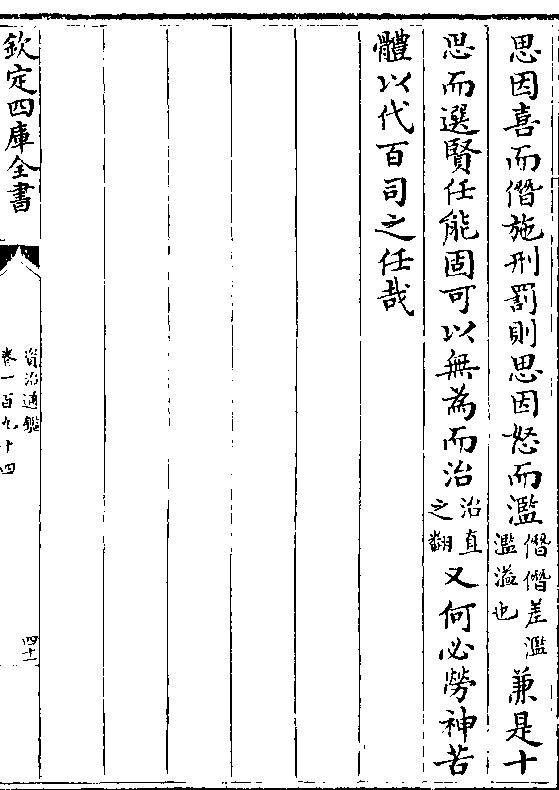 思因喜而僭施刑罰則思因怒而濫僭僭差濫濫溢也兼是十
思而選賢任能固可以無為而治治直之翻又何必勞神苦
體以代百司之任哉
欽定四庫全書
資治通鑑
卷一百九十四
四十一